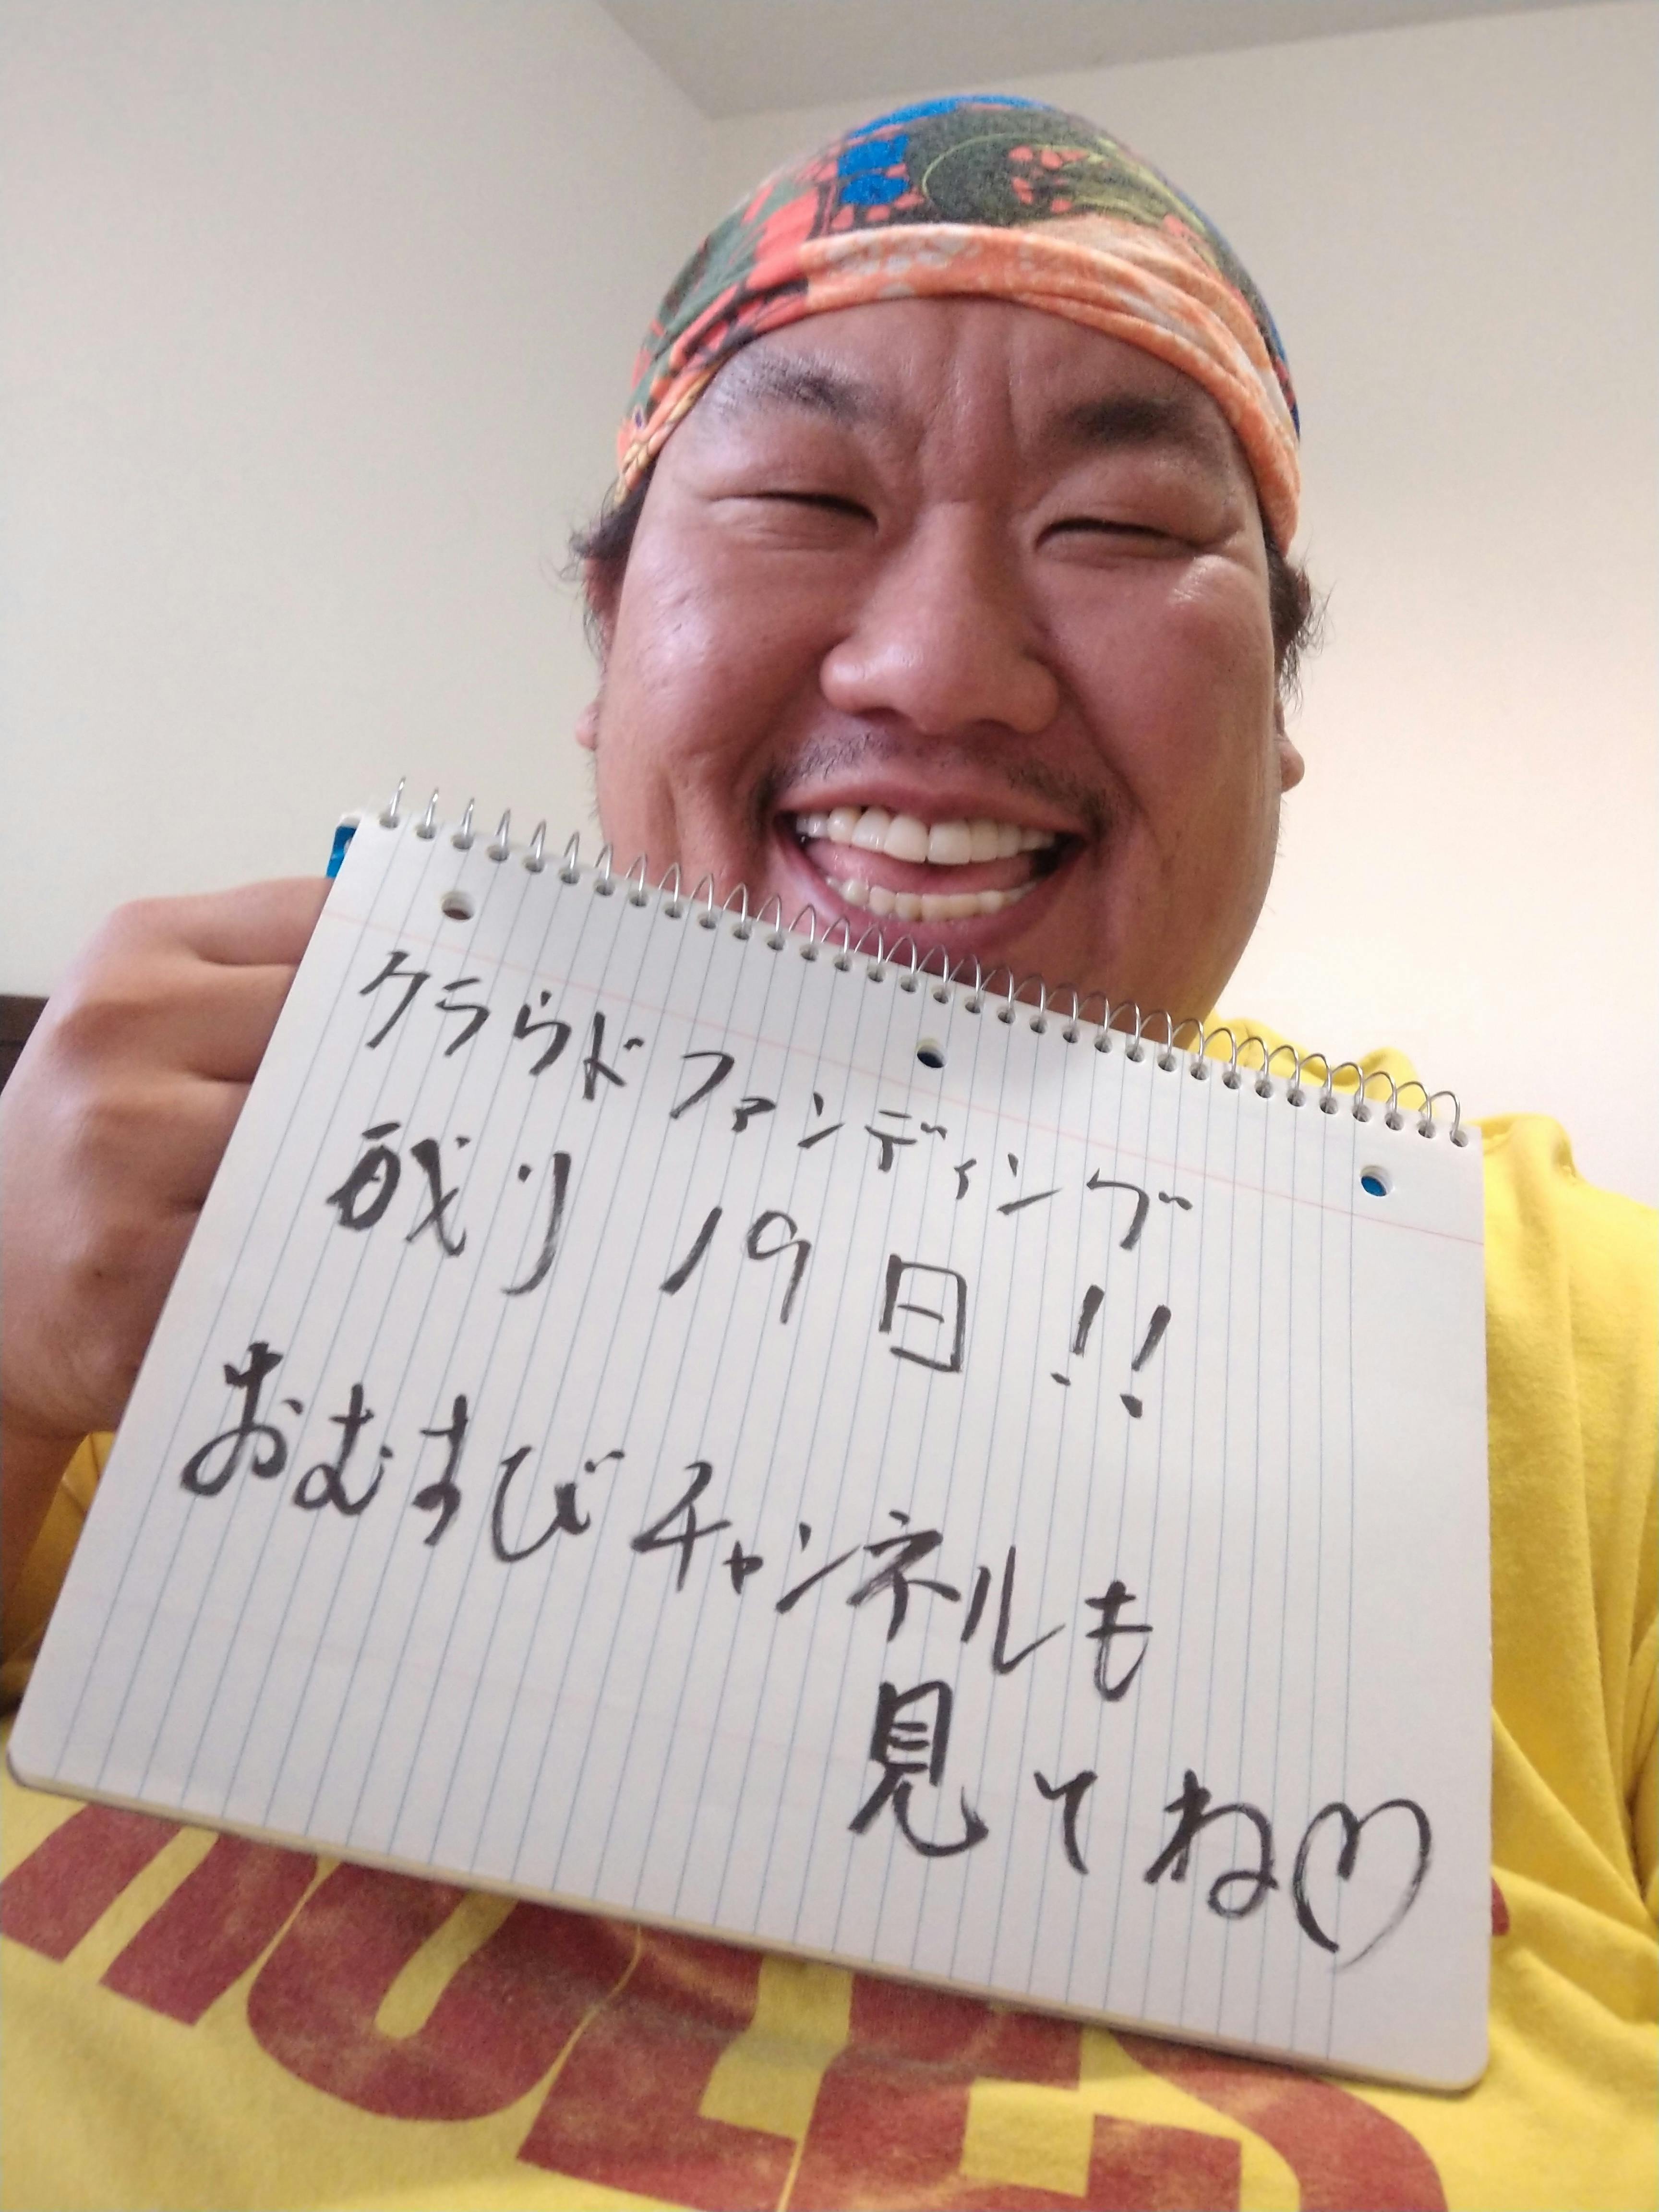 クラウドファンディング
残り 19日!!
おむすびチャンネルも
見てね♡